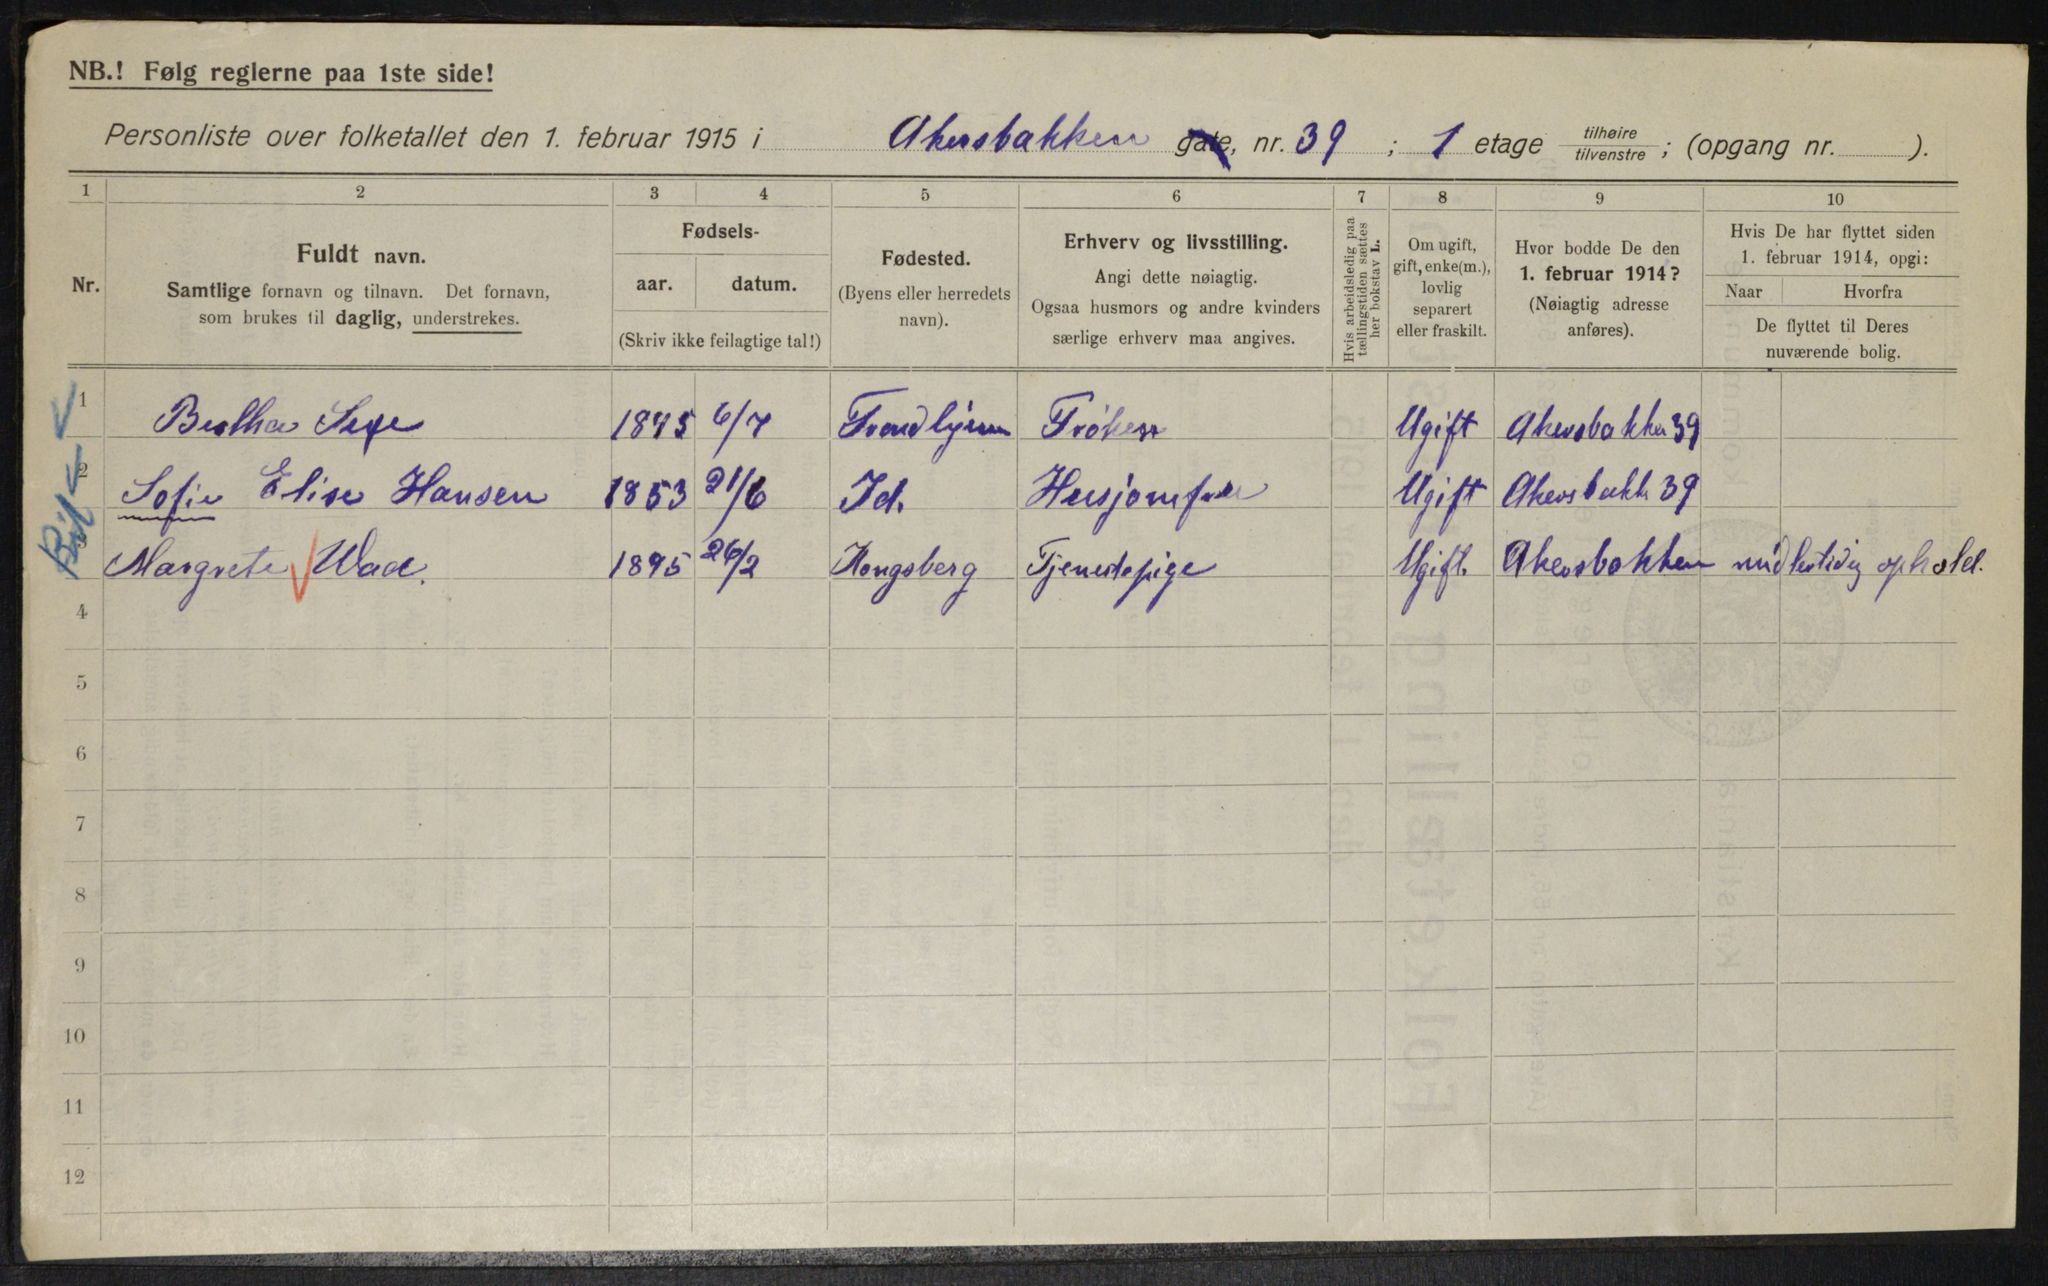 NB.! Følg reglerne paa 1ste side!
Personliste over folketallet den 1. februar 1915 i Akersbakken gate, nr. 39 ; 1 etage tilhøire tilvenstre ; (opgang nr. ).
1 2 3 4 5 6 7 8 9 10
Nr.
Fuldt navn.
Samtlige fornavn og tilnavn. Det fornavn,
som brukes til daglig, understrekes.
Fødsels-
aar. datum.
(Skriv ikke feilagtige tal!)
Fødested.
(Byens eller herredets
navn).
Erhverv og livsstilling.
Angi dette nøiagtig.
Ogsaa husmors og andre kvinders
særlige erhverv maa angives.
Hvis arbeidsledig paa
tællingstiden sættes
her bokstav L.
Om ugift,
gift, enke(m.),
lovlig
separert
eller fraskilt.
Hvor bodde De den
1. februar 1914?
(Nøiagtig adresse
anføres).
Hvis De har flyttet siden
1. februar 1914, opgi:
Naar Hvorfra
De flyttet til Deres
nuværende bolig.
1 Bertha Sexe 1845 6/7 Trondhjem Frøken Ugift Akersbakken 39
2 Sofie Elise Hansen 1853 21/6 Id. Ugift Akersbakk 39
3 Margrete Wad. 1895 26/2 Kongsberg Tjenestepige Ugift. Akersbakken midlertidig ophold.
4
5
6
7
8
9
10
11
12